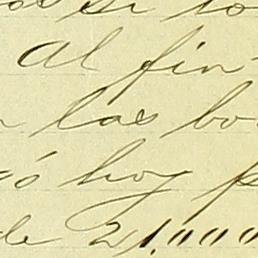 Al fin
las bo
hoy p
de 21.000